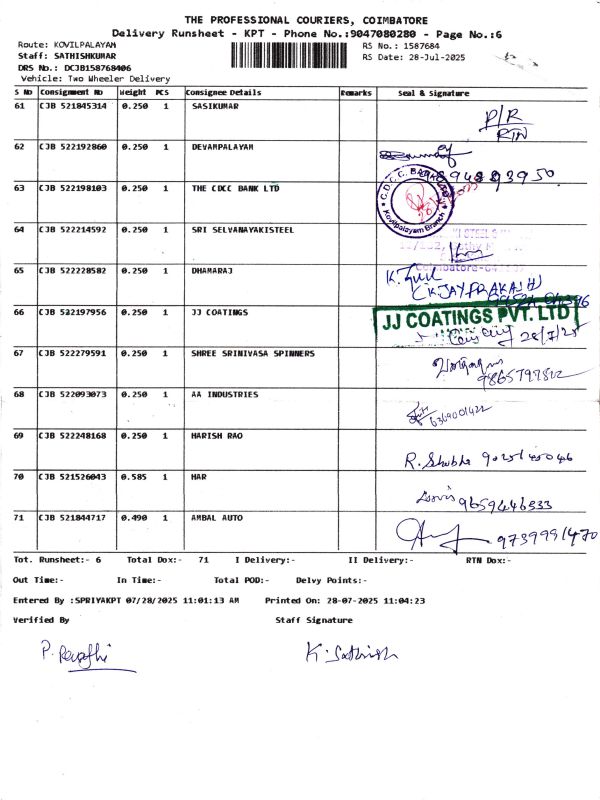 THE PROFESSIONAL COURIERS, COIMBATORE
Delivery Runsheet - KPT - Phone No.:9047080280 - Page No.:6
Route: KOVILPALAYAM
Staff: SATHISHKUMAR
DRS No.: DCJB158768406
Vehicle: Two Wheeler Delivery
RS No.: 1587684
RS Date: 28-Jul-2025
S No Consignment No Weight PCS Consignee Details Remarks Seal & Signature
61 CJB 521845314 0.250 1 SASIKUMAR P/R RTN
62 CJB 522192860 0.250 1 DEVAMPALAYAM
63 CJB 522198103 0.250 1 THE CDCC BANK LTD
C.D.C.C. BANK
Kovilpalayam Branch
64 CJB 522214592 0.250 1 SRI SELVANAYAKISTEEL
65 CJB 522228582 0.250 1 DHAMARAJ
(K.JAYPRAKASH)
66 CJB 522197956 0.250 1 JJ COATINGS JJ COATINGS PVT. LTD
28/7/25
67 CJB 522279591 0.250 1 SHREE SRINIVASA SPINNERS
68 CJB 522093073 0.250 1 AA INDUSTRIES 6369001422
69 CJB 522248168 0.250 1 HARISH RAO R.
70 CJB 521526043 0.585 1 HAR 9659446333
71 CJB 521844717 0.490 1 AMBAL AUTO 9739991470
Tot. Runsheet:- 6 Total Dox:- 71 I Delivery:- II Delivery:- RTN Dox:-
Out Time:- In Time:- Total POD:- Delvy Points:-
Entered By :SPRIYAKPT 07/28/2025 11:01:13 AM Printed On: 28-07-2025 11:04:23
Verified By Staff Signature
P. Revathi K. Sathish